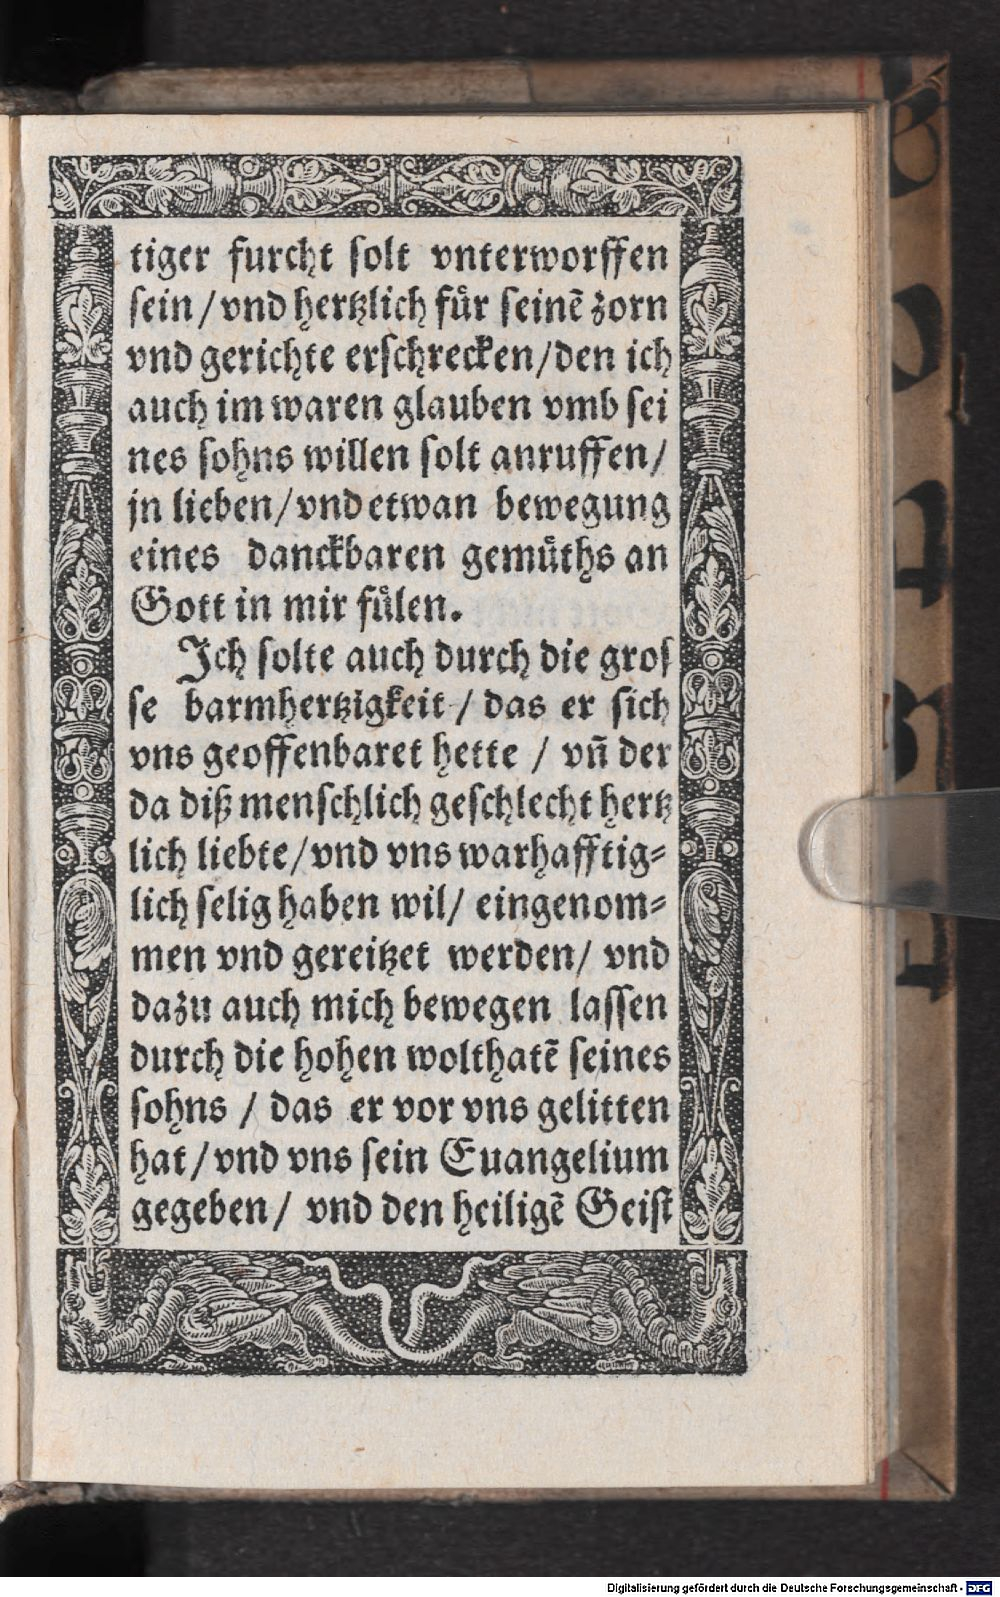 tiger furcht solt vnterworffen
sein / vnd hertzlich fuͤr seinē zorn
vnd gerichte erschrecken / den ich
auch im waren glauben vmb sei
nes sohns willen solt anruffen /
jn lieben / vnd etwan bewegung
eines danckbaren gemuͤths an
Gott in mir fuͤlen.
Ich solte auch durch die gros
se barmhertzigkeit / das er sich
vns geoffenbaret hette / vn̄ der
da diß menschlich geschlecht hertz
lich liebte / vnd vns warhafftig⸗
lich selig haben wil / eingenom⸗
men vnd gereitzet werden / vnd
dazu auch mich bewegen lassen
durch die hohen wolthatē seines
sohns / das er vor vns gelitten
hat / vnd vns sein Euangelium
gegeben / vnd den heiligē Geist
Digitalisierung gefördert durch die Deutsche Forschungsgemeinschaft - DFG